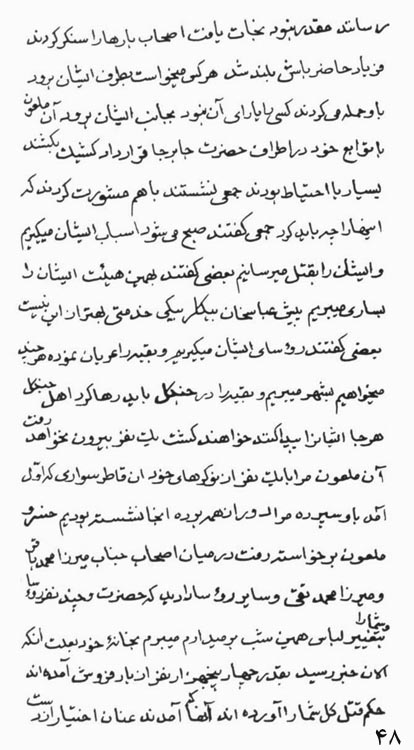 رسانند مقدر نبود نجات یافت اصحاب بارها را سنکر کردند
فریاد حاضر باش بلند شد هر که میخواست بطرف ایشان برود
باو حمله می کردند کسی یارای آن نبود بجانب ایشان برود آن ملعون
با توابع خود در اطراف حضرت جابرجا قرارداد کشیک بکشند
بسیار با احتیاط بودند جمعی نشستند باهم مشورت کردند که
اینها را چه باید کرد جمعی کفتند صبح می شود اسباب ایشان میکیریم
و ایشان را بقتل میرسانیم بعضی کفتند بهمین هیئت ایشان را
بساری میبریم پیش عباسخان بیکلر بیکی خدمتی بهتر از این نیست
بعضی کفتند رؤسای ایشان میکیریم و بقیه را عریان نموده هر چند
میخواهیم بشهر میبریم و بقیه را در جنکل باید رها کرد اهل جنکل
هر جا ایشانرا پیدا کنند خواهند کشت یک نفر بیرون نخواهد رفت
آن ملعون مرا با یک نفر از نوکرهای خود ان قاطر سواری که اول
آمد باو سپرده مراد و ران همر بوده انجا نشسته بودیم خسرو
ملعون برخواسته رفت در میان اصحاب جناب میرزا محمد باقر
و میرزا محمد تقی و سایر رؤسا را دید که حضرت و چند نفر رؤسا
شما را بتغییر لباس همین شب برمیدارم میبرم بخانهٔ خود بعلت انکه
الان خبر رسید بقدر چهار پنجهزار نفر از بارفروش آمده اند
حکم قتل کل شما را آورده اند آنها که آمدند عنان اختیار از دست
۴۸